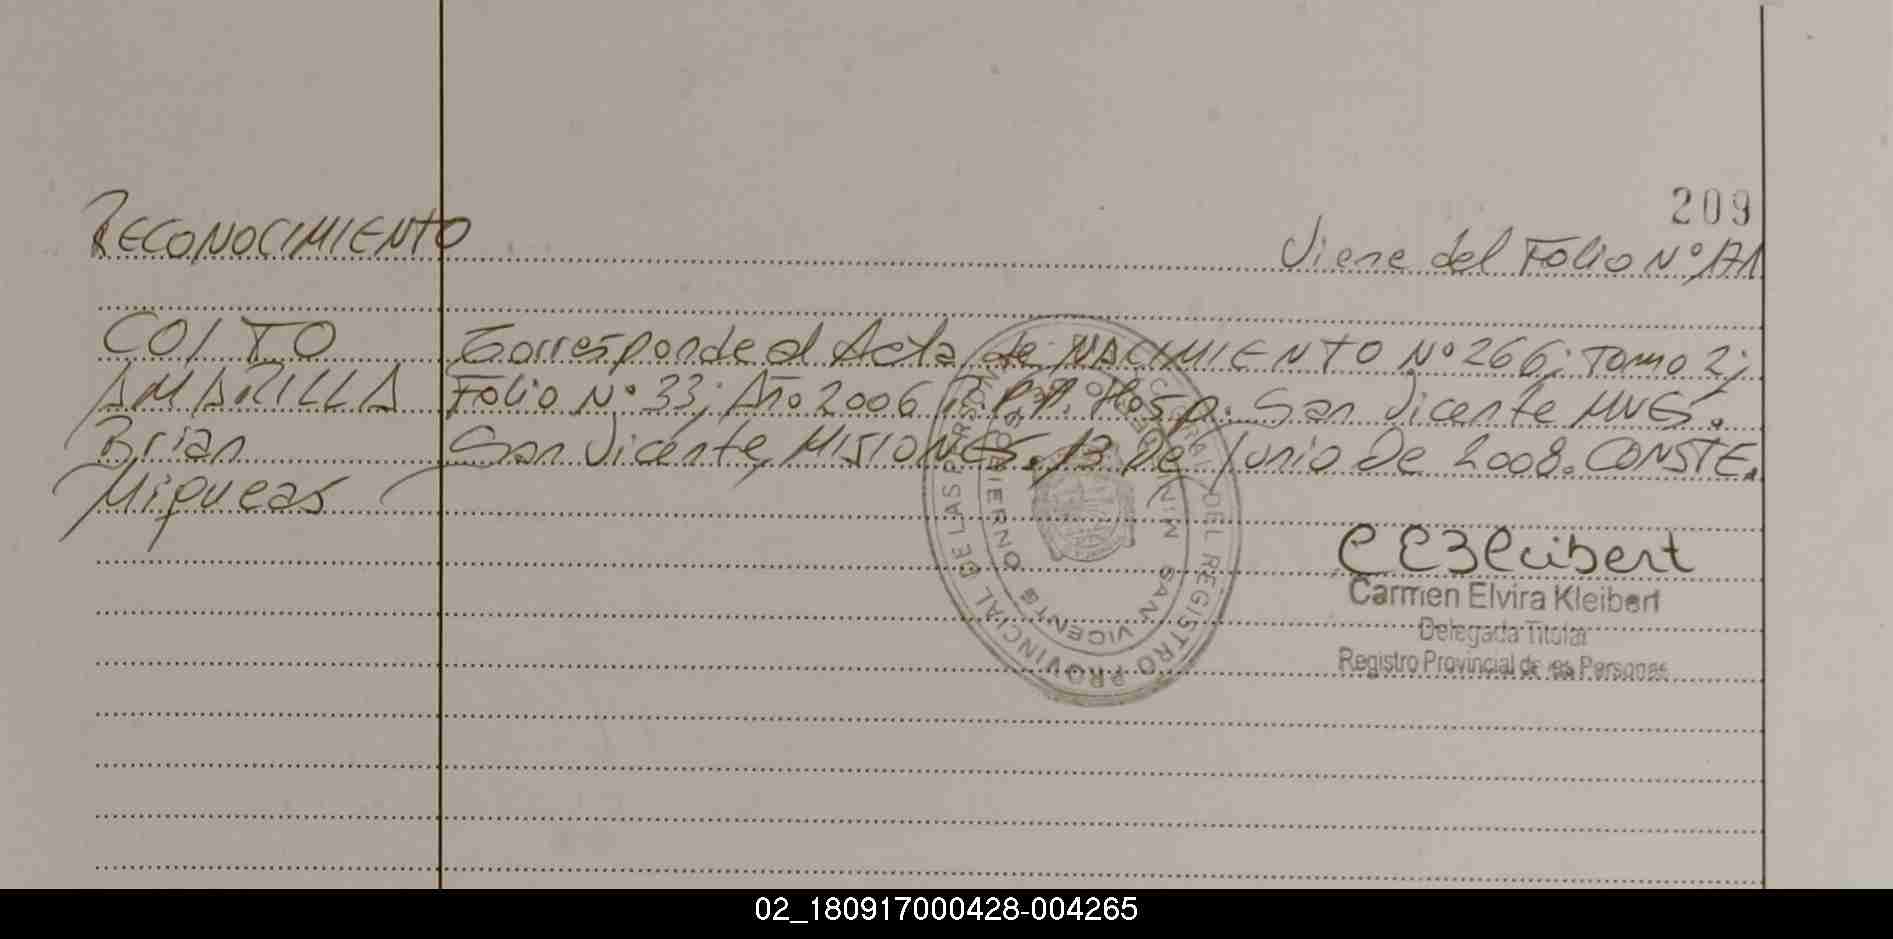 209
RECONOCIMIENTO
Viene del Folio Nº 171
COITO
AMARILLA
Brian
Miqueas
Corresponde al Acta de NACIMIENTO Nº 266; Tomo 2;
Folio Nº 33; Año 2006 Hosp. San Vicente MNES.
San Vicente, MISIONES. 13 De Junio De 2008. CONSTE.
DEL REGISTRO PROVINCIAL DE LAS PERSONAS
SAN VICENTE
CEKleibert
Carmen Elvira Kleibert
Delegada Titular
Registro Provincial de las Personas
02_180917000428-004265